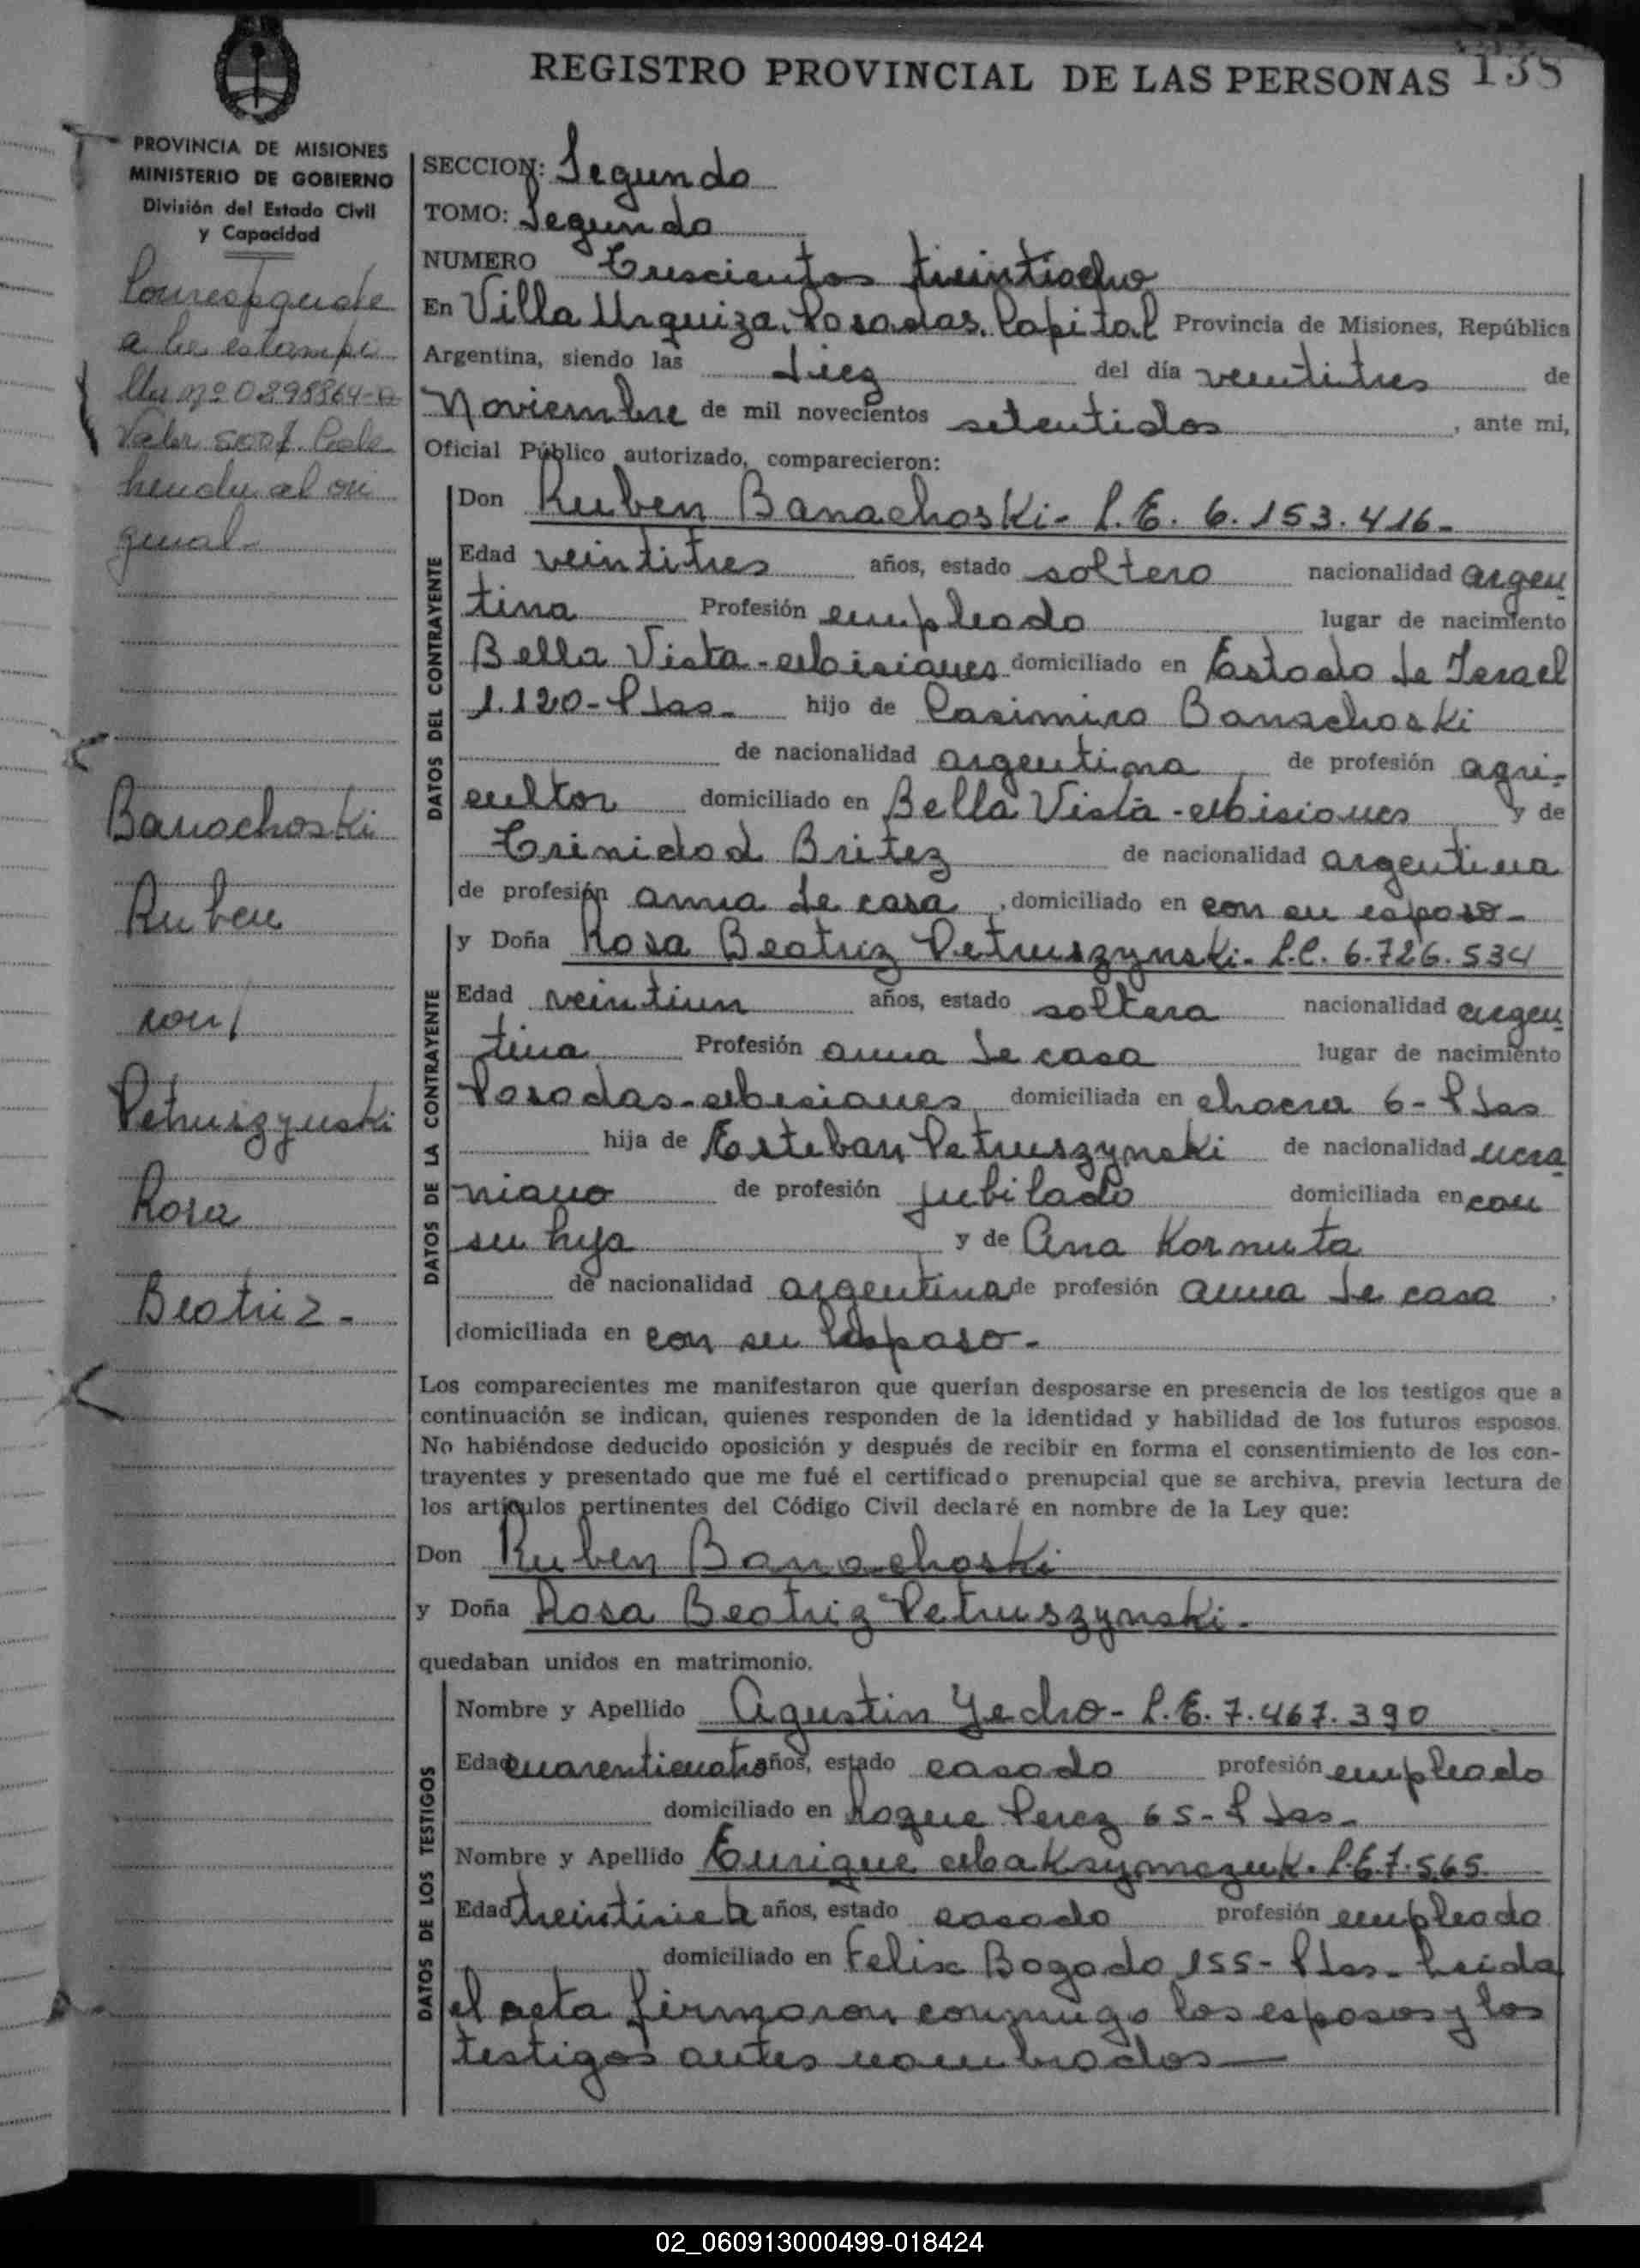 REGISTRO PROVINCIAL DE LAS PERSONAS 138
PROVINCIA DE MISIONES
MINISTERIO DE GOBIERNO
División del Estado Civil
y Capacidad
Corresponde
a la estampi
lla nº 0898864-
Valor 500$ Cole
hendu al ori
ginal-
Banachoski
Ruben
con/
Petruszynski
Rosa
Beatriz-
SECCION: Segundo
TOMO: Segundo
NUMERO Trescientos treintiocho
En Villa Urquiza, Posadas, Capital Provincia de Misiones, República
Argentina, siendo las diez del día veintitres de
Noviembre de mil novecientos setentidos, ante mi,
Oficial Público autorizado, comparecieron:
DATOS DEL CONTRAYENTE
Don Ruben Banachoski- L.E. 6.153.416-
Edad veintitres años, estado soltero nacionalidad argen
tina Profesión empleado lugar de nacimiento
Bella Vista-Misiones domiciliado en Estado de Israel
1.120-Pdas- hijo de Casimiro Banachoski
de nacionalidad argentina, de profesión agri-
cultor domiciliado en Bella Vista-Misiones y de
Trinidad Britez de nacionalidad argentina
de profesión ama de casa, domiciliado en con su esposo-
DATOS DE LA CONTRAYENTE
y Doña Rosa Beatriz Petruszynski- L.C. 6.726.534
Edad veintiun años, estado soltera nacionalidad argen
tina Profesión ama de casa lugar de nacimiento
Posadas-Misiones domiciliada en chacra 6-Pdas
hija de Esteban Petruszynski de nacionalidad ucra
niano de profesión jubilado domiciliada en con
su hija y de Ana Kornuta
de nacionalidad argentina de profesión ama de casa,
domiciliada en con su esposo-
Los comparecientes me manifestaron que querían desposarse en presencia de los testigos que a
continuación se indican, quienes responden de la identidad y habilidad de los futuros esposos.
No habiéndose deducido oposición y después de recibir en forma el consentimiento de los con-
trayentes y presentado que me fué el certificado prenupcial que se archiva, previa lectura de
los artículos pertinentes del Código Civil declaré en nombre de la Ley que:
Don Ruben Banachoski
y Doña Rosa Beatriz Petruszynski-
quedaban unidos en matrimonio.
DATOS DE LOS TESTIGOS
Nombre y Apellido Agustin Yedro- L.E. 7.467.390
Edad cuarenticuatro años, estado casado profesión empleado
domiciliado en Roque Perez 65-Pdas-
Nombre y Apellido Enrique Maksymczuk- L.E 7.565
Edad treintisiete años, estado casado profesión empleado
domiciliado en Felix Bogado 155-Pdas- Leída
el acta firmaron conmigo los esposos y los
testigos antes nombrados—
02_060913000499-018424